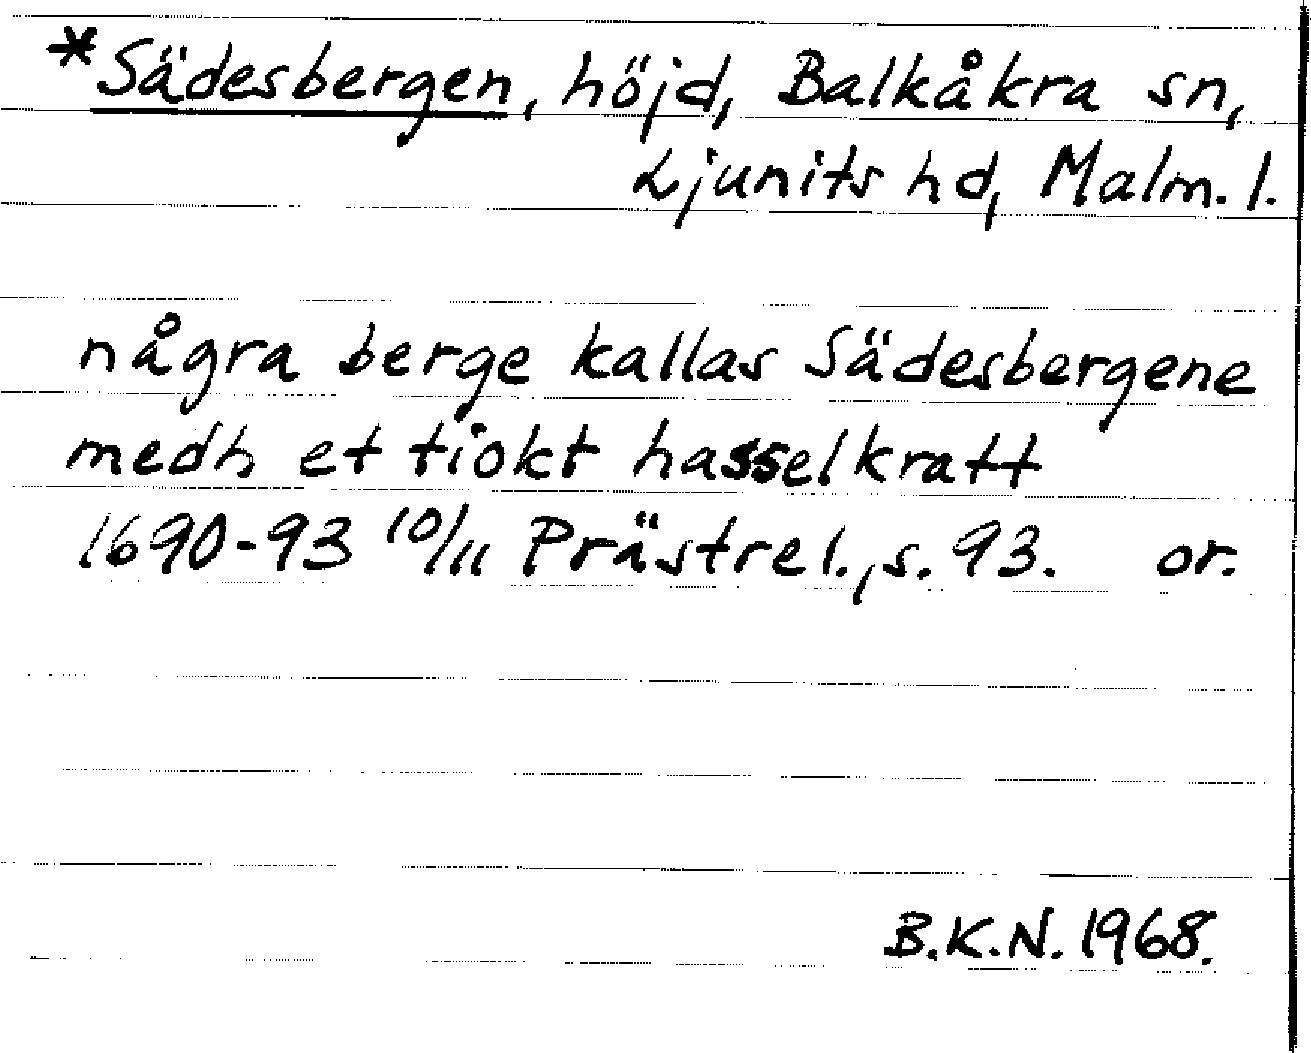 *Sädesbergen, höjd, Balkåkra sn,
Ljunits hd, Malm. l.
några berge kallas Sädesbergene
medh et tiokt hasselkratt
1690-93 10/11 Prästrel., s. 93. or.
B.K.N. 1968.